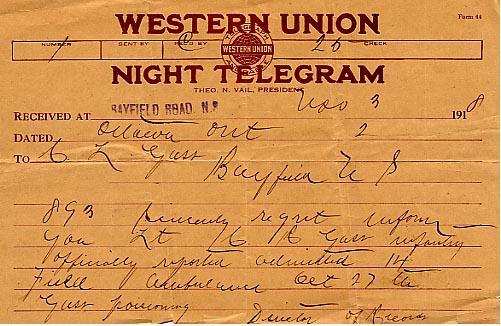 WESTERN UNION
Form 44
NUMBER SENT BY REC'D BY CHECK
1 25
TELEGRAM
WESTERN UNION
NIGHT TELEGRAM
THEO. N. VAIL, PRESIDENT
RECEIVED AT BAYFIELD ROAD, N.B. Nov 3 1918
DATED Ottawa Ont 2
TO C L Gass
Bayfield N S
893 Sincerely regret inform
you Lt C C Gass infantry
officially reported admitted 14
Field Ambulance Oct 27th
Gass poisoning Director of Records